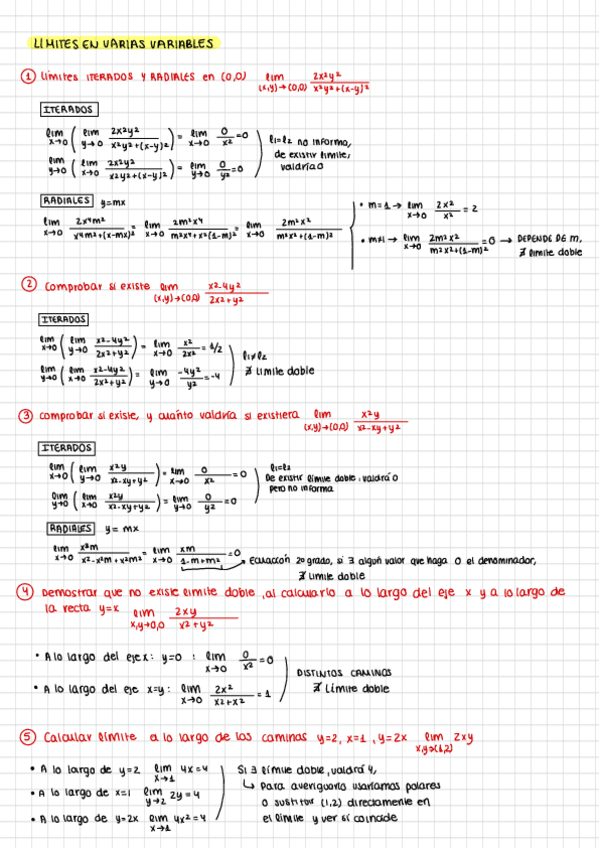 LÍMITES EN VARIAS VARIABLES
① Límites ITERADOS Y RADIALES en (0,0) lim (x,y)→(0,0) 2x²y² / x²y²+(x-y)²
ITERADOS
lim x→0 ( lim y→0 2x²y² / x²y²+(x-y)² ) = lim x→0 0/x² = 0
lim y→0 ( lim x→0 2x²y² / x²y²+(x-y)² ) = lim y→0 0/y² = 0
l1=l2 no informa,
de existir limite,
valdría 0
RADIALES y=mx
lim x→0 2x⁴m² / x⁴m²+(x-mx)² = lim x→0 2m²x⁴ / m²x⁴+x²(1-m)² = lim x→0 2m²x² / m²x²+(1-m)²
• m=1 → lim x→0 2x²/x² = 2
• m≠1 → lim x→0 2m²x² / m²x²+(1-m)² = 0 → DEPENDE DE m,
∄ limite doble
② Comprobar si existe lim (x,y)→(0,0) x²-4y² / 2x²+y²
ITERADOS
lim x→0 ( lim y→0 x²-4y² / 2x²+y² ) = lim x→0 x²/2x² = 1/2
lim y→0 ( lim x→0 x²-4y² / 2x²+y² ) = lim y→0 -4y²/y² = -4
l1≠l2
∄ Límite doble
③ Comprobar si existe, y cuánto valdría si existiera lim (x,y)→(0,0) x²y / x²-xy+y²
ITERADOS
lim x→0 ( lim y→0 x²y / x²-xy+y² ) = lim x→0 0/x² = 0
lim y→0 ( lim x→0 x²y / x²-xy+y² ) = lim y→0 0/y² = 0
l1=l2
De existir límite doble, valdrá 0
pero no informa
RADIALES y= mx
lim x→0 x³m / x²-x²m+x²m² = lim x→0 xm / 1-m+m² = 0
→ Ecuación 2o grado, si ∃ algún valor que haga 0 el denominador,
∄ limite doble
④ Demostrar que no existe límite doble, al calcularlo a lo largo del eje x y a lo largo de
la recta y=x lim x,y→0,0 2xy / x²+y²
• A lo largo del eje x: y=0 : lim x→0 0/x² = 0
• A lo largo del eje x=y: lim x→0 2x² / x²+x² = 1
DISTINTOS CAMINOS
∄ Límite doble
⑤ Calcular límite a lo largo de los caminas y=2, x=1, y=2x lim x,y→(1,2) 2xy
• A lo largo de y=2 lim x→1 4x=4
• A lo largo de x=1 lim y→2 2y=4
• A lo largo de y=2x lim x→1 4x²=4
Si ∃ límite doble, valdrá 4,
↳ Para averiguarlo usaríamos polares
o sustituir (1,2) directamente en
el límite y ver si coincide